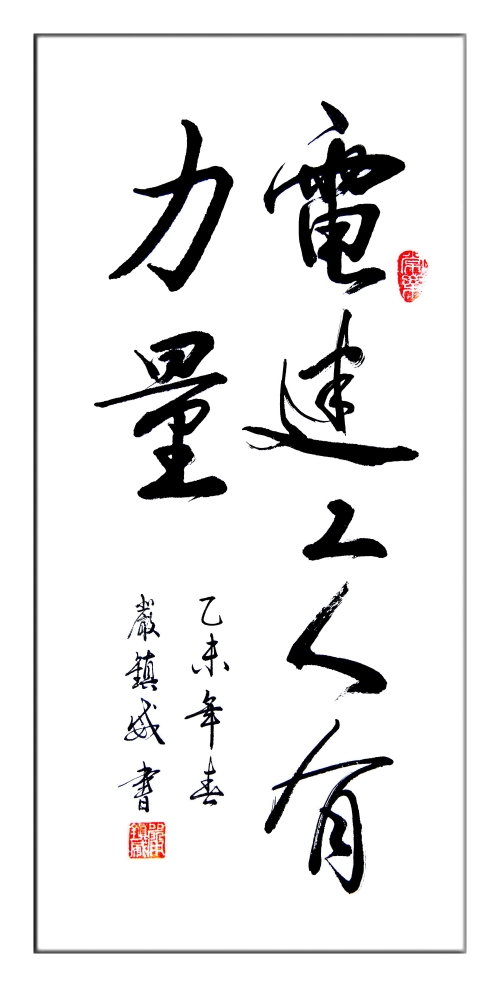 電建工人有
力量
乙未年春
嚴鎮威書